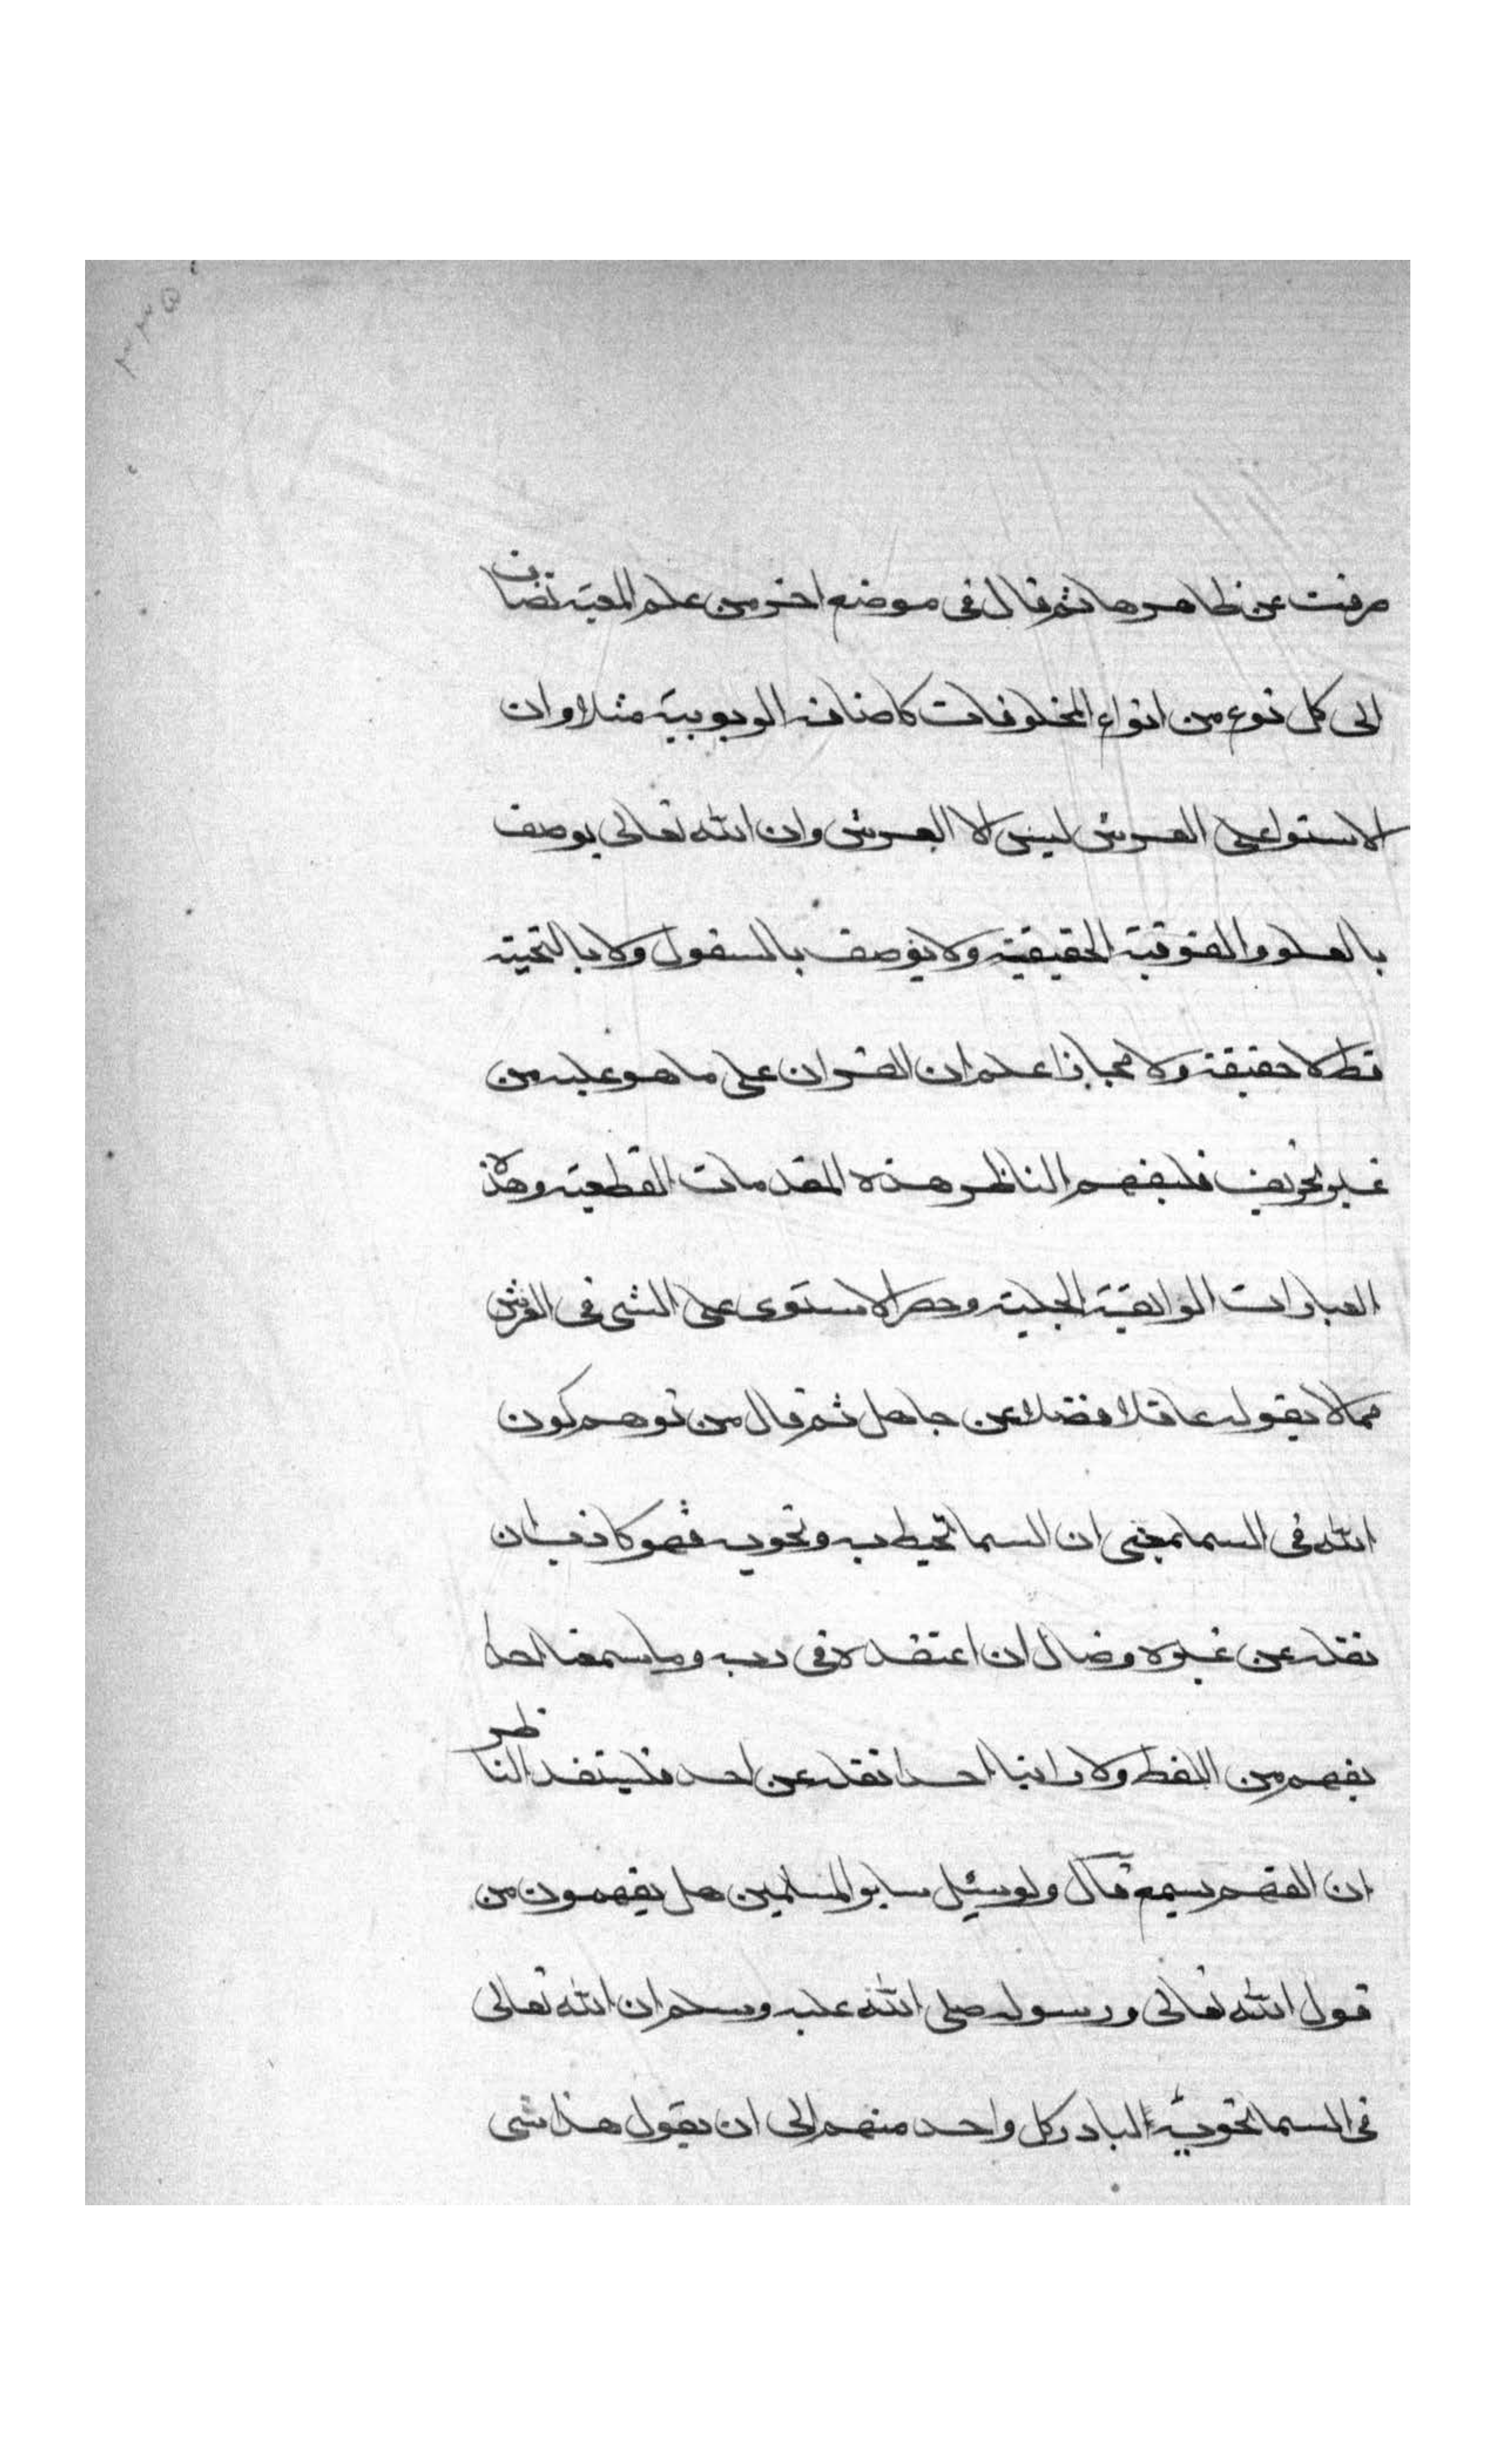 صرفت عن ظاهرها ثم قال فى موضع اخر من علم المعية تضاف
الى كل نوع من انواع المخلوقات كاضافة الربوبية مثلا وان
الاستوا على العرش ليس الا العرش وان الله تعالى يوصف
بالعلو والفوقية الحقيقية ولا يوصف بالسفول ولا بالتحتية
قط لا حقيقة ولا مجازا علم ان القران على ما هو عليه من
غير تحريف فليفهم الناظر هذه المقدمات القطعية وهذه
العبارات الرايقية الجلية وحصر الاستوى على الشى فى العرش
مما لا يقوله عاقلا فضلا عن جاهل ثم قال من توهم كون
الله فى السما بمعنى ان السما تحيط به وتحويه فهو كاذب ان
نقله عن غيره وضال ان اعتقده فى ربه وما سمعنا احدا
يفهم من اللفظ ولا راينا احدا نقله عن احد فليتفد الناظر
ان الفهم يسمع قال ولو سئيل ساير المسلمين هل يفهمون من
قول الله تعالى ورسوله صلى الله عليه وسلم ان الله تعالى
فى السما تحويه لبادر كل واحد منهم الى ان يقول هذا شى